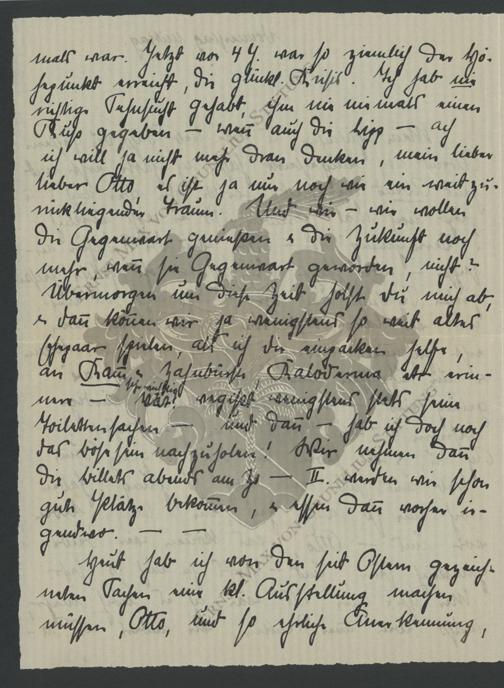 mals war. Jetzt vor 4 J. war so ziemlich der Hö-
hepunkt erreicht, die glückl. Krisis. Ich hab nie
richtige Sehnsucht gehabt, ihm nie niemals einen
Kuß gegeben — wenn auch die Lipp — ach
ich will ja nicht mehr dran denken, mein lieber
lieber Otto, es ist ja nur noch wie ein weit zu-
rückliegender Traum. Und wir — wir wollen
die Gegenwart genießen & die Zukunft noch
mehr, wenn sie Gegenwart geworden, nicht?
Übermorgen um diese Zeit holst du mich ab,
& dann können wir ja wenigstens so weit altes
Ehepaar spielen, als ich dir einpacken helfe,
an Kamm & Zahnbürste, Kaloderma etc erin-
nere — vergißt wenigstens stets seine
Toilettensachen — und dann — hab ich doch noch
das böse sein nachzuholen! Wir nehmen dann
die billets abends am — II. werden wir schon
gute Plätze bekommen, & essen dann vorher ir-
gendwo. — —
Heut hab ich von den seit Ostern gezeich-
neten Sachen eine kl. Ausstellung machen
müssen, Otto, und so ehrliche Anerkennung,